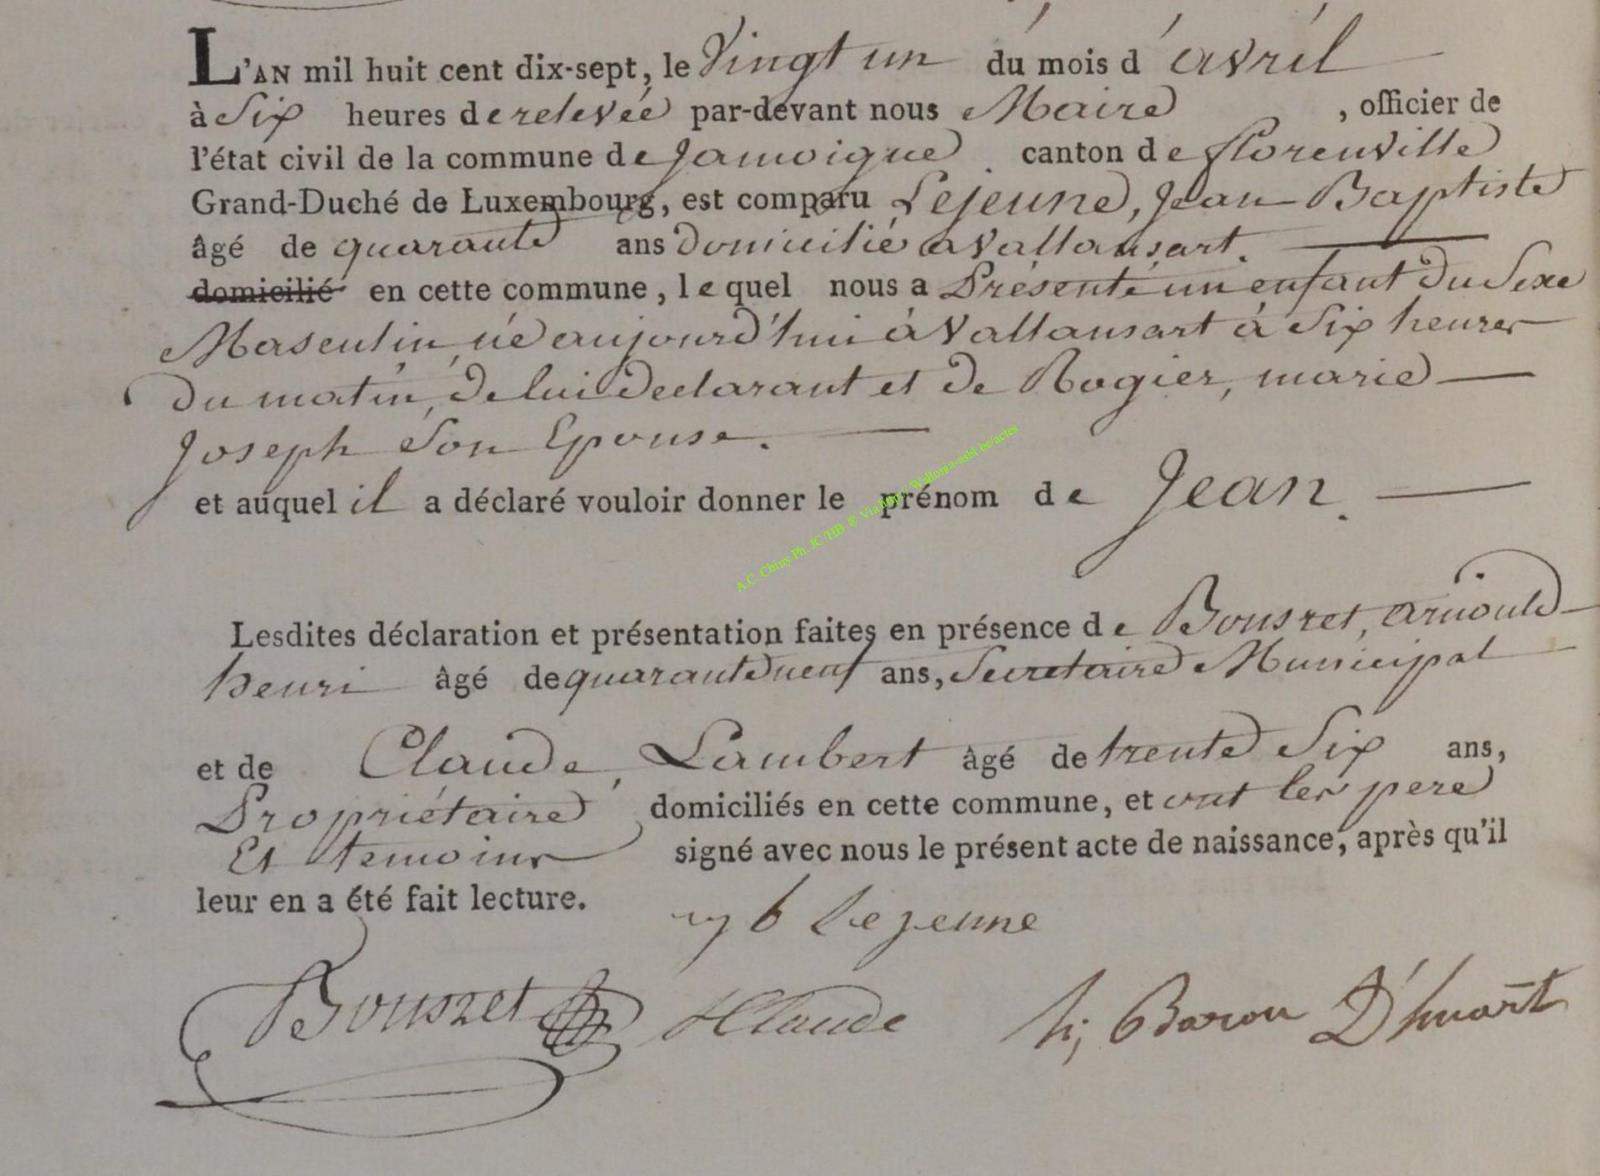 L'AN mil huit cent dix-sept, le Vingt un du mois d'avril
à Six heures de relevée par-devant nous Maire , officier de
l'état civil de la commune de Jamoigne canton de florenville
Grand-Duché de Luxembourg, est comparu Lejeune, Jean Baptiste
âgé de quarante ans domicilié a Vallansart.
domicilié en cette commune, lequel nous a Présenté un enfant du Sexe
Masculin, né aujourd'hui à Vallansart à Six heures
du matin, de lui declarant et de Rogier, marie
Joseph Son Epouse.
et auquel il a déclaré vouloir donner le prénom de Jean.
Lesdites déclaration et présentation faites en présence de Bousret, arnould
henri âgé de quarante neuf ans, Secretaire Municipal
et de Claude, Lambert âgé de trente Six ans,
Propriétaire domiciliés en cette commune, et ont les pere
Et temoins signé avec nous le présent acte de naissance, après qu'il
leur en a été fait lecture.
b lejeune
Bousret Claude h; Baron D'huart